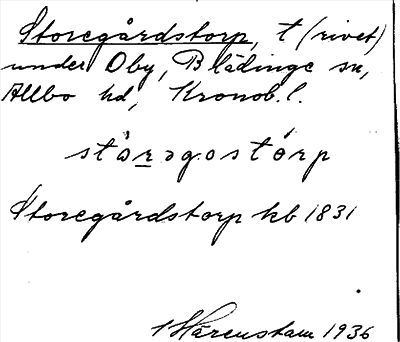 Storegårdstorp, t (rivet)
under Oby, Blädinge sn,
Allbo hd, Kronob. l.
stårəgostórp
Storegårdstorp kb 1831
Härenstam 1936